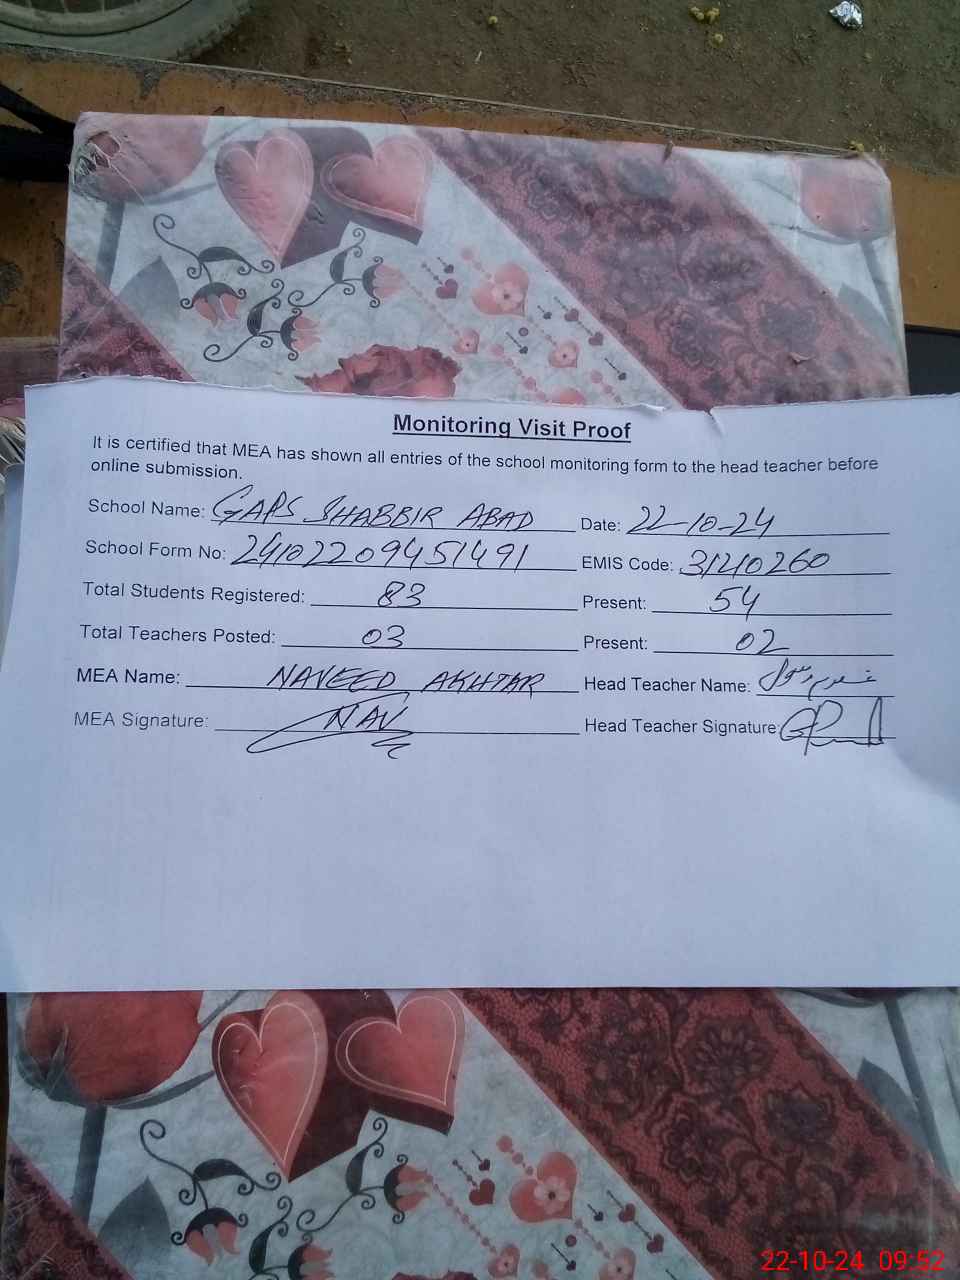 Monitoring Visit Proof
It is certified that MEA has shown all entries of the school monitoring form to the head teacher before
online submission.
School Name: GAPS SHABBIR ABAD Date: 22-10-24
School Form No: 24102209451491 EMIS Code: 31240260
Total Students Registered: 83 Present: 54
Total Teachers Posted: 03 Present: 02
MEA Name: NAVEED AKHTAR Head Teacher Name:
MEA Signature: NAV Head Teacher Signature:
22-10-24 09:52